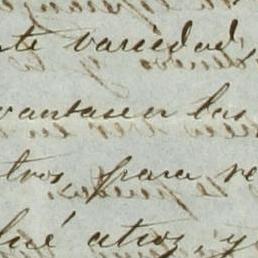 te variedad,
vantasen las
tros, para re
fué atroz, y